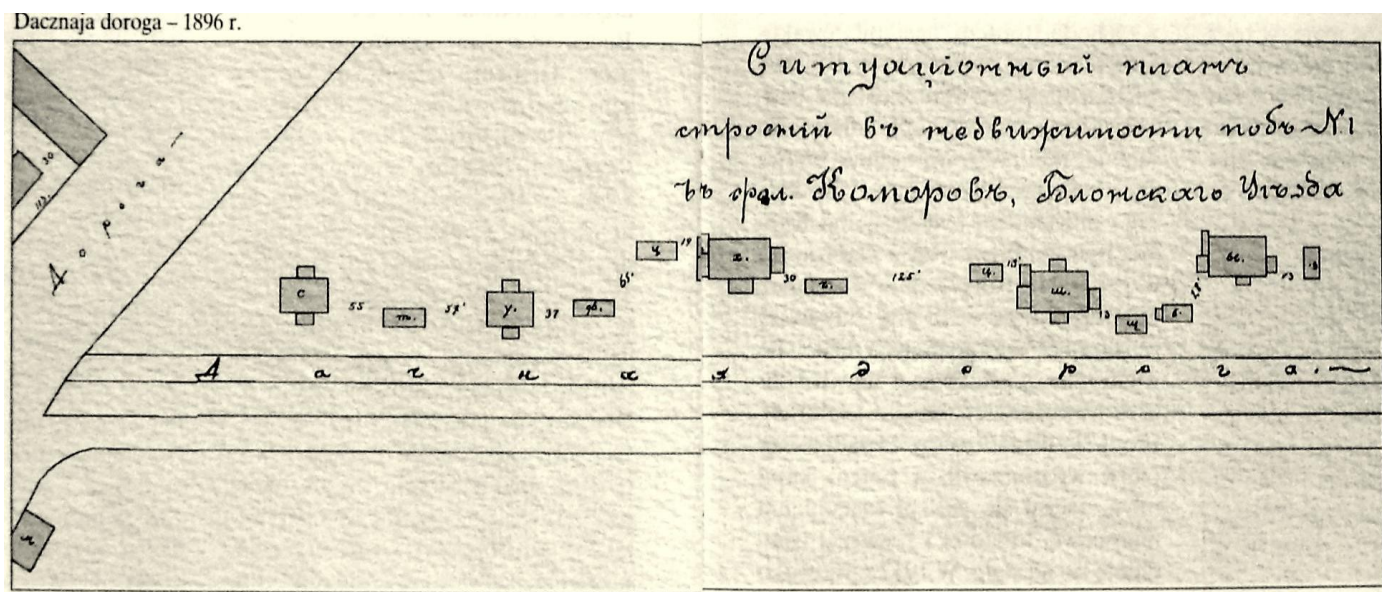 Dacznaja doroga – 1896 r.
Ситуаціонный планъ
строеній въ недвижимости подъ №1
въ фол. Коморовъ, Блонскаго Уѣзда
Дорога
30
19
с
55
т.
57'
у.
37
ф.
65'
ц
х.
30
125'
ц.
15'
ш.
13
щ
28'
13
Дачная дорога.